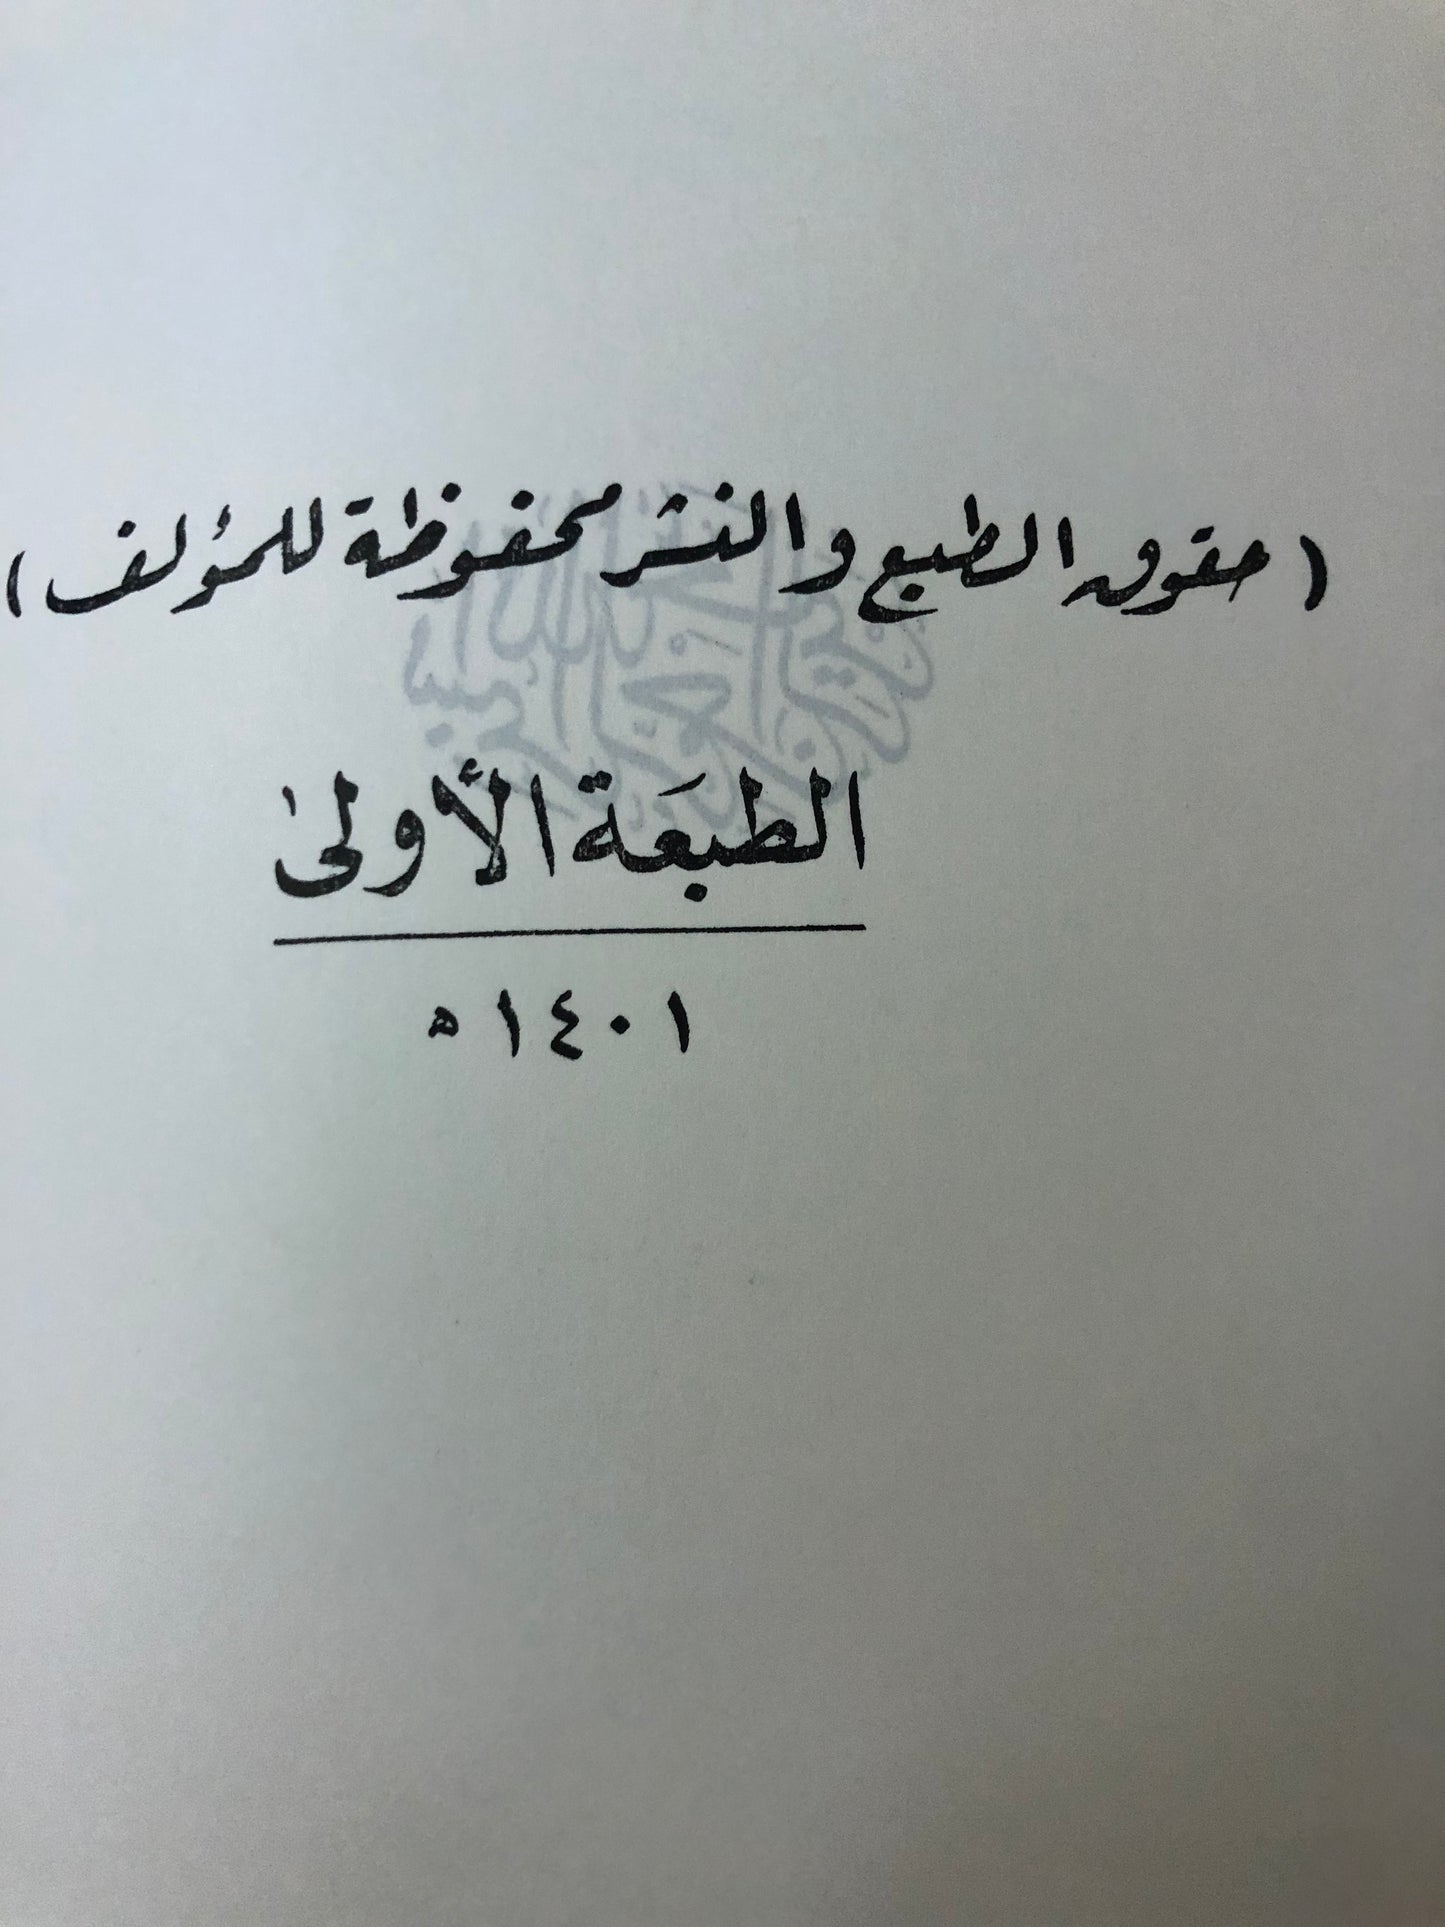 (حقوق الطبع والنشر محفوظة للمؤلف)
الطبعَة الأولىٰ
١٤٠١ ه